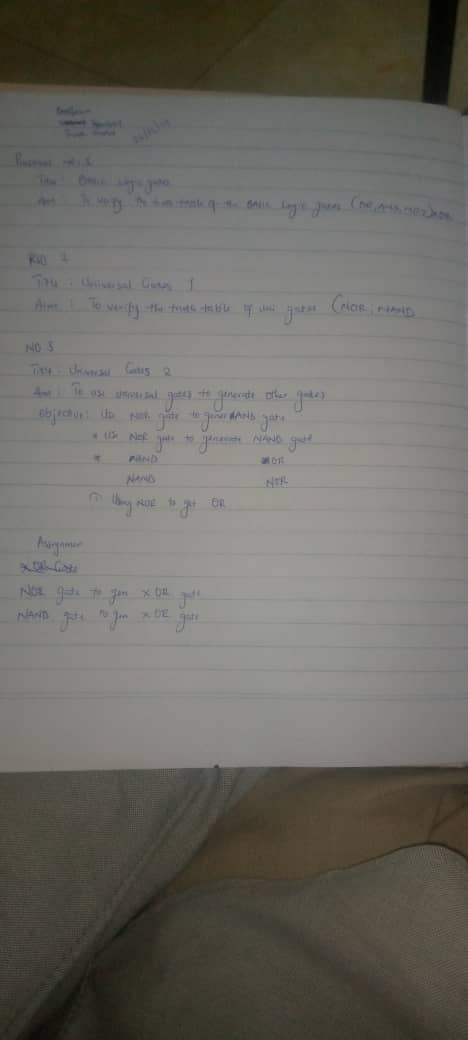 Title: Basic Logic gates
Aim: To verify the truth table of the Basic Logic gates
Title: Universal Gates 1
Aim: To verify the truth table of uni gates (NOR, NAND
NO 3
Title: Universal Gates 2
Aim: To use universal gates to generate other gates
Objective: Us NOR gate to gener AND gate
* Us NOR gate to generate NAND gate
* NAND OR
NAND NOR
① Using NOR to get OR
Assignmen
NOR gate to gen XOR gate
NAND gate to gen XOR gate